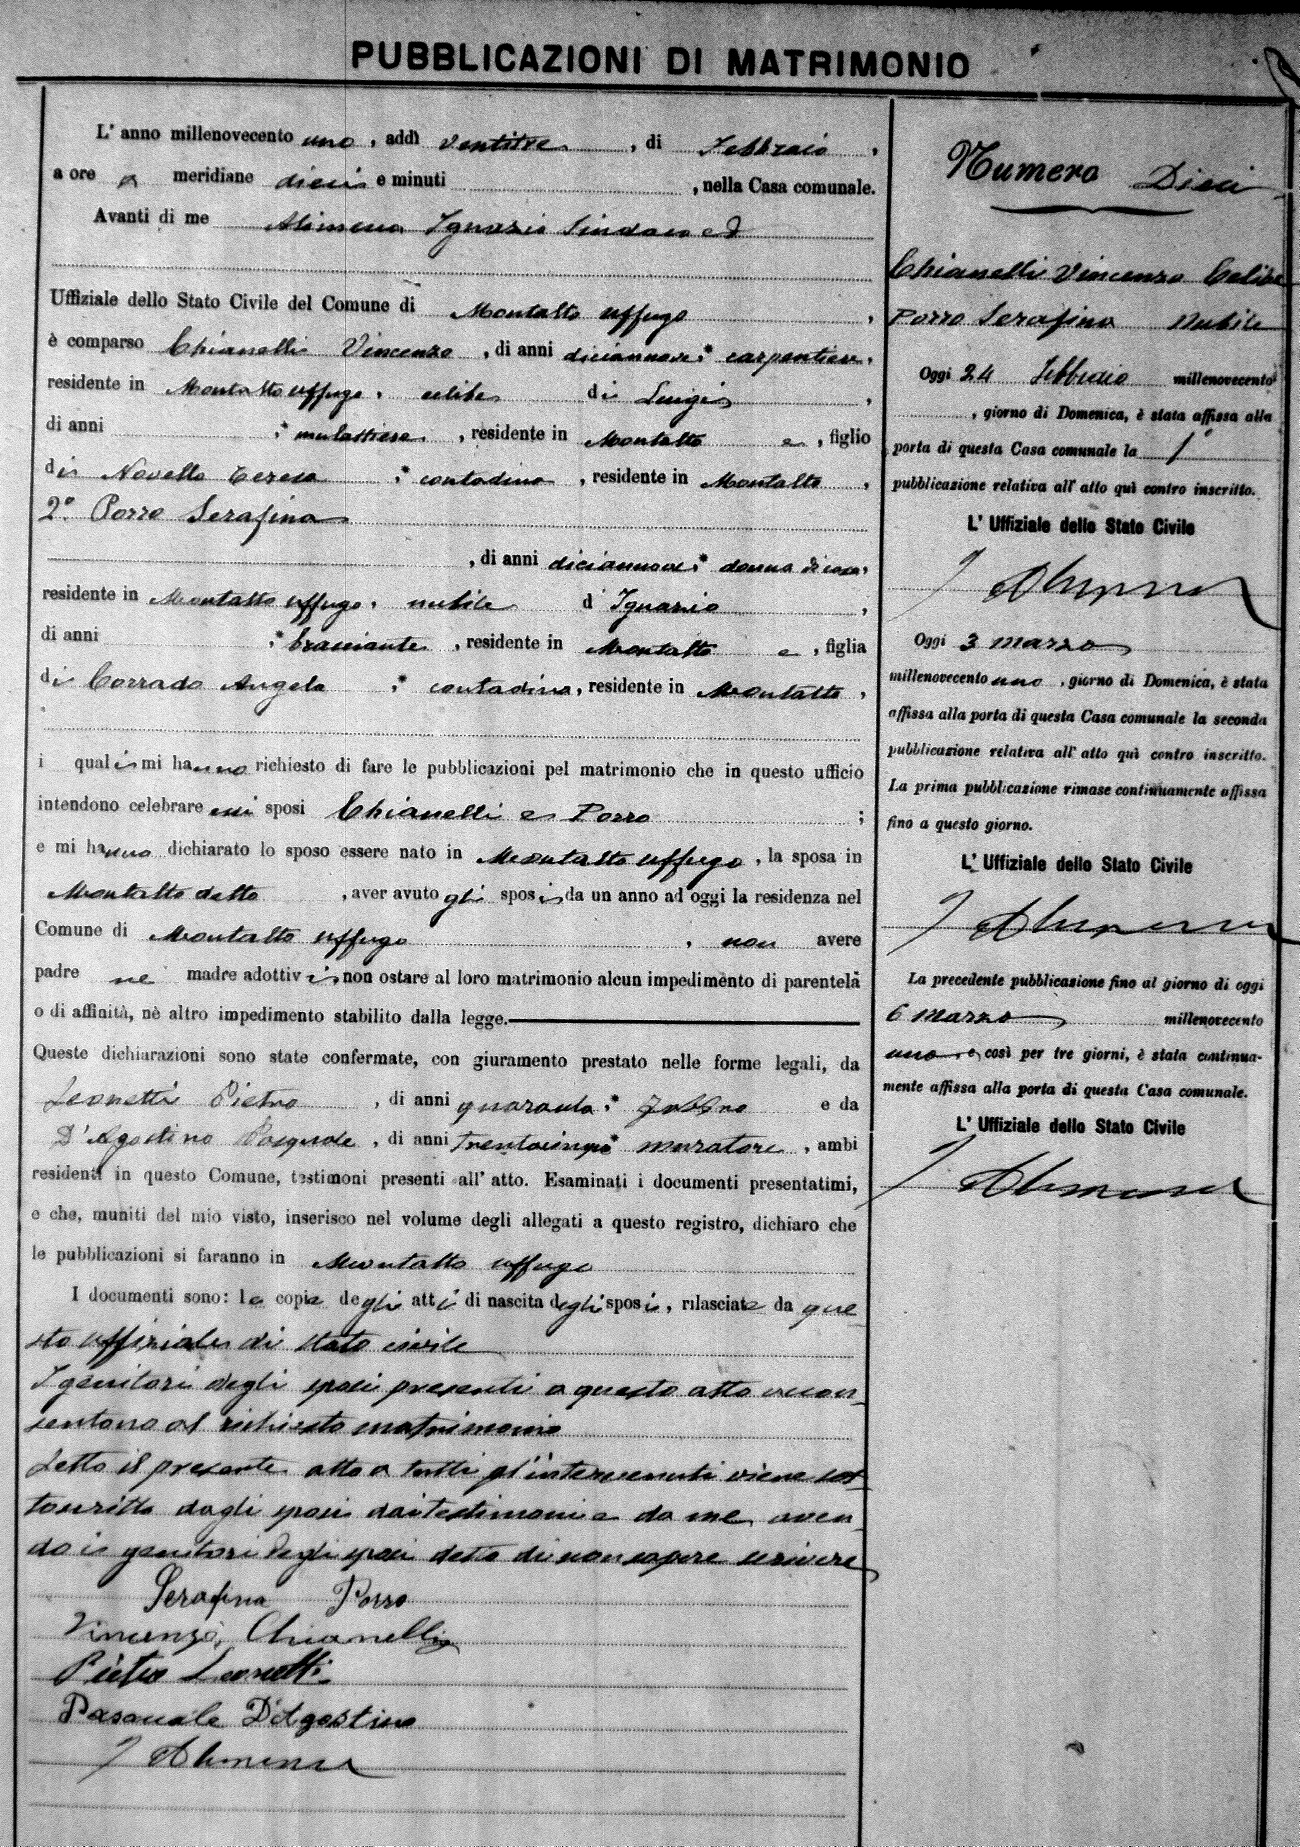 PUBBLICAZIONI DI MATRIMONIO
L' anno millenovecento uno, addì ventitre, di Febbraio,
a ore a meridiane dieci e minuti , nella Casa comunale.
Avanti di me Alimena Ignazio Sindaco ed
Uffiziale dello Stato Civile del Comune di Montalto Uffugo,
è comparso Chianelli Vincenzo, di anni diciannove, carpentiere,
residente in Montalto Uffugo, celibe di Luigi,
di anni , mulattiere, residente in Montalto e, figlio
di Novello Teresa, contadina, residente in Montalto,
2° Porro Serafina
, di anni diciannove, donna di casa,
residente in Montalto Uffugo, nubile d'Ignazio,
di anni , bracciante, residente in Montalto e, figlia
di Corrado Angela, contadina, residente in Montalto,
i quali mi hanno richiesto di fare le pubblicazioni pel matrimonio che in questo ufficio
intendono celebrare essi sposi Chianelli e Porro ;
e mi hanno dichiarato lo sposo essere nato in Montalto Uffugo, la sposa in
Montalto detto, aver avuto gli sposi da un anno ad oggi la residenza nel
Comune di Montalto Uffugo, non avere
padre nè madre adottivi, non ostare al loro matrimonio alcun impedimento di parentela
o di affinità, nè altro impedimento stabilito dalla legge.
Queste dichiarazioni sono state confermate, con giuramento prestato nelle forme legali, da
Leonetti Pietro, di anni quaranta, fabbro e da
D'Agostino Pasquale, di anni trentacinque muratore, ambi
residenti in questo Comune, testimoni presenti all' atto. Esaminati i documenti presentatimi,
e che, muniti del mio visto, inserisco nel volume degli allegati a questo registro, dichiaro che
le pubblicazioni si faranno in Montalto Uffugo
I documenti sono: le copie degli atti di nascita degli sposi, rilasciate da que
sto uffiziale di stato civile
I genitori degli sposi presenti a questo atto accon
sentono al richiesto matrimonio
Letto il presente atto a tutti gl'intervenuti viene sot
toscritto dagli sposi dai testimoni e da me, aven
do i genitori degli sposi detto di non sapere scrivere
Serafina Porro
Vincenzo Chianelli
Pietro Leonetti
Pasquale D'Agostino
I Alimena
Numero Dieci
Chianelli Vincenzo Celibe
Porro Serafina nubile
Oggi 24 Febbraio millenovecento
, giorno di Domenica, è stata affissa alla
porta di questa Casa comunale la 1°
pubblicazione relativa all' atto quì contro inscritto.
L' Uffiziale dello Stato Civile
I Alimena
Oggi 3 marzo
millenovecento uno, giorno di Domenica, è stata
affissa alla porta di questa Casa comunale la seconda
pubblicazione relativa all' atto quì contro inscritto.
La prima pubblicazione rimase continuamente affissa
fino a questo giorno.
L' Uffiziale dello Stato Civile
I Alimena
La precedente pubblicazione fino al giorno di oggi
6 marzo millenovecento
uno e così per tre giorni, è stata continua-
mente affissa alla porta di questa Casa comunale.
L' Uffiziale dello Stato Civile
I Alimena